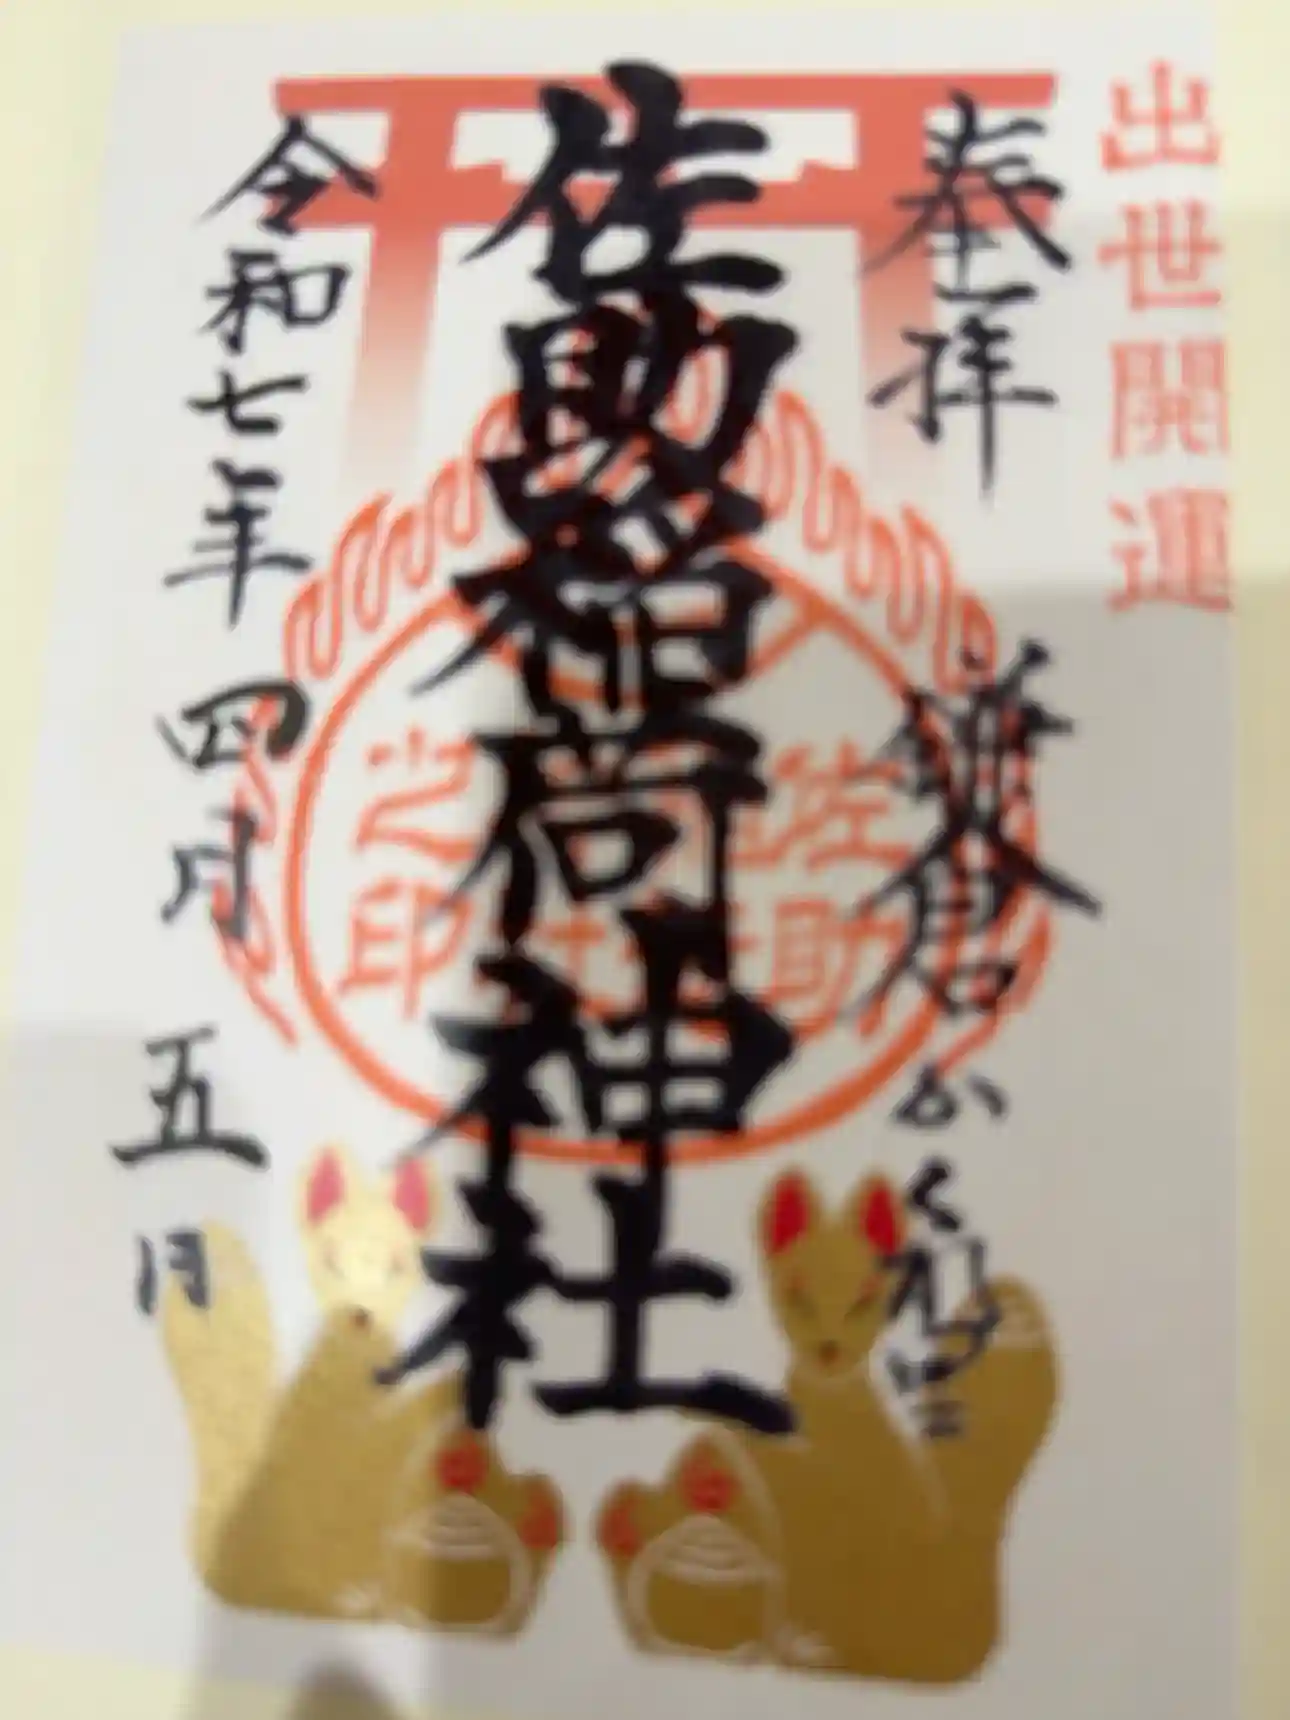 出世開運
奉拝
鎌倉かくれざと
佐助稲荷神社
佐助
之印
令和七年四月五日